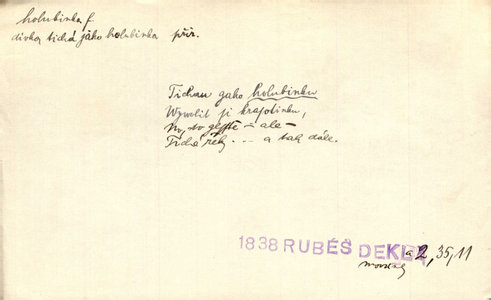 holubinka f.
dívka tichá jako holubinka přir.
Tichau gako holubinku
Wywolil gi kragtinku,
No, to gessstě ale —
Tichá řek . . . a tak dále.
1838 RUBEŠ DEKL a 2, 35, 11